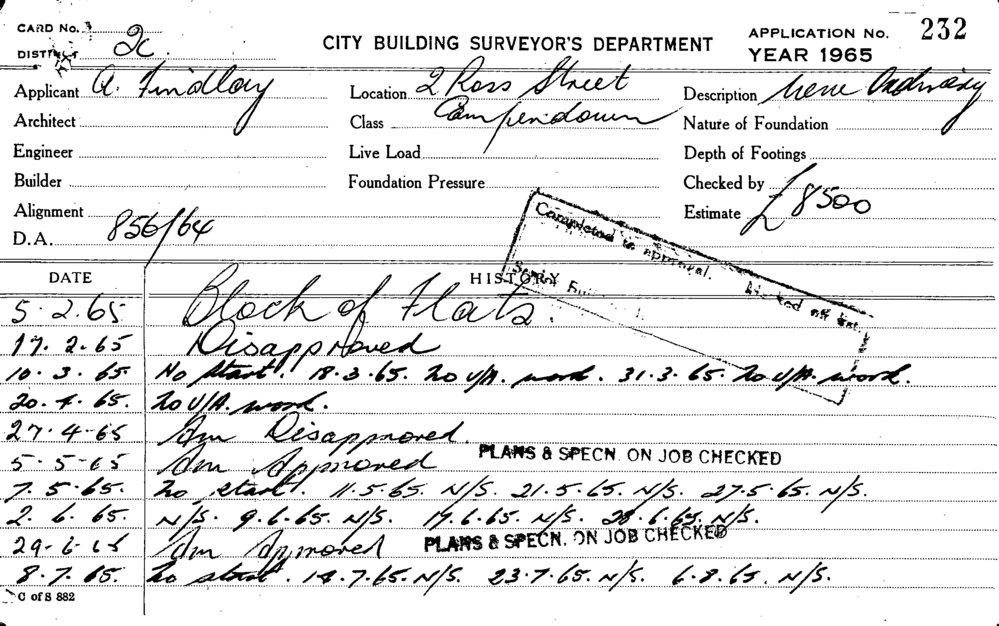 CARD No. 3
DISTRICT 2c.
CITY BUILDING SURVEYOR'S DEPARTMENT
APPLICATION No. 232
YEAR 1965
Applicant A. Findlay
Location 2 Ross Street
Description New Ordinary
Architect
Class Camperdown
Nature of Foundation
Engineer
Live Load
Depth of Footings
Builder
Foundation Pressure
Checked by
Alignment
Estimate £8500
D.A. 856/64
Completed to approval. Marked off list.
DATE
HISTORY
5.2.65 Block of Flats.
17.2.65 Disapproved
10.3.65 No start. 18.3.65. No U/A. work. 31.3.65. No U/A. work.
20.4.65. No U/A. work.
27.4.65 Am Disapproved.
5.5.65 Am Approved PLANS & SPECN. ON JOB CHECKED
7.5.65. No start. 11.5.65. N/S. 21.5.65. N/S. 27.5.65. N/S.
2.6.65. N/S. 9.6.65. N/S. 17.6.65. N/S. 28.6.65. N/S.
29.6.65 Am Approved PLANS & SPECN. ON JOB CHECKED
8.7.65. No start. 14.7.65. N/S. 23.7.65. N/S. 6.8.65. N/S.
C of S 882